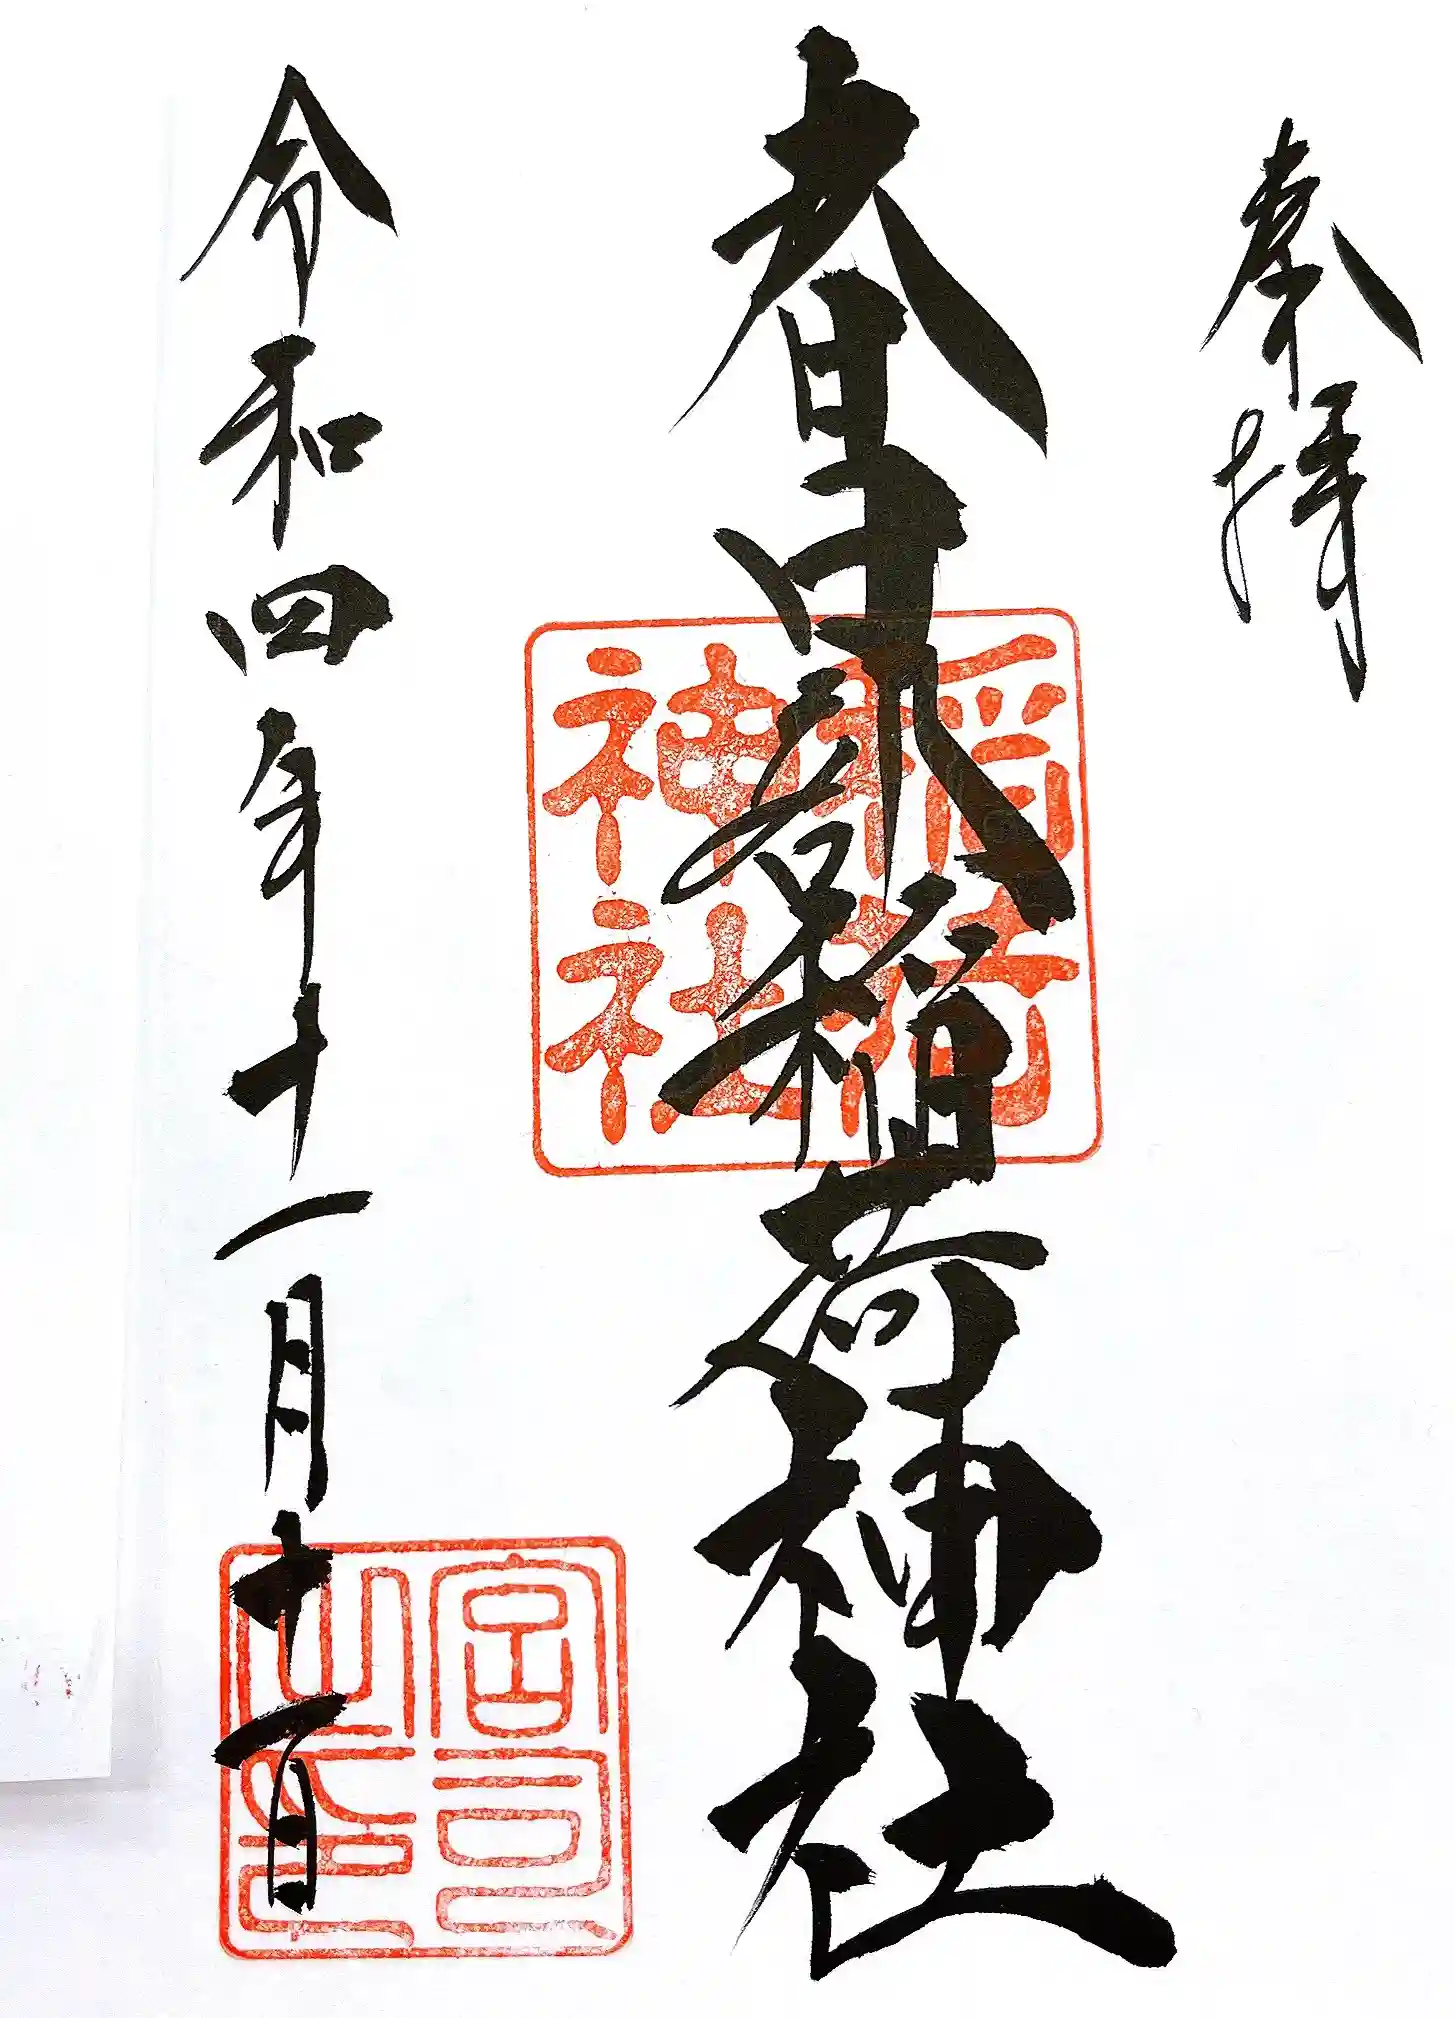 奉拝
春日部稲荷神社
令和四年十一月十一日
稲荷
神社
宮司
之印